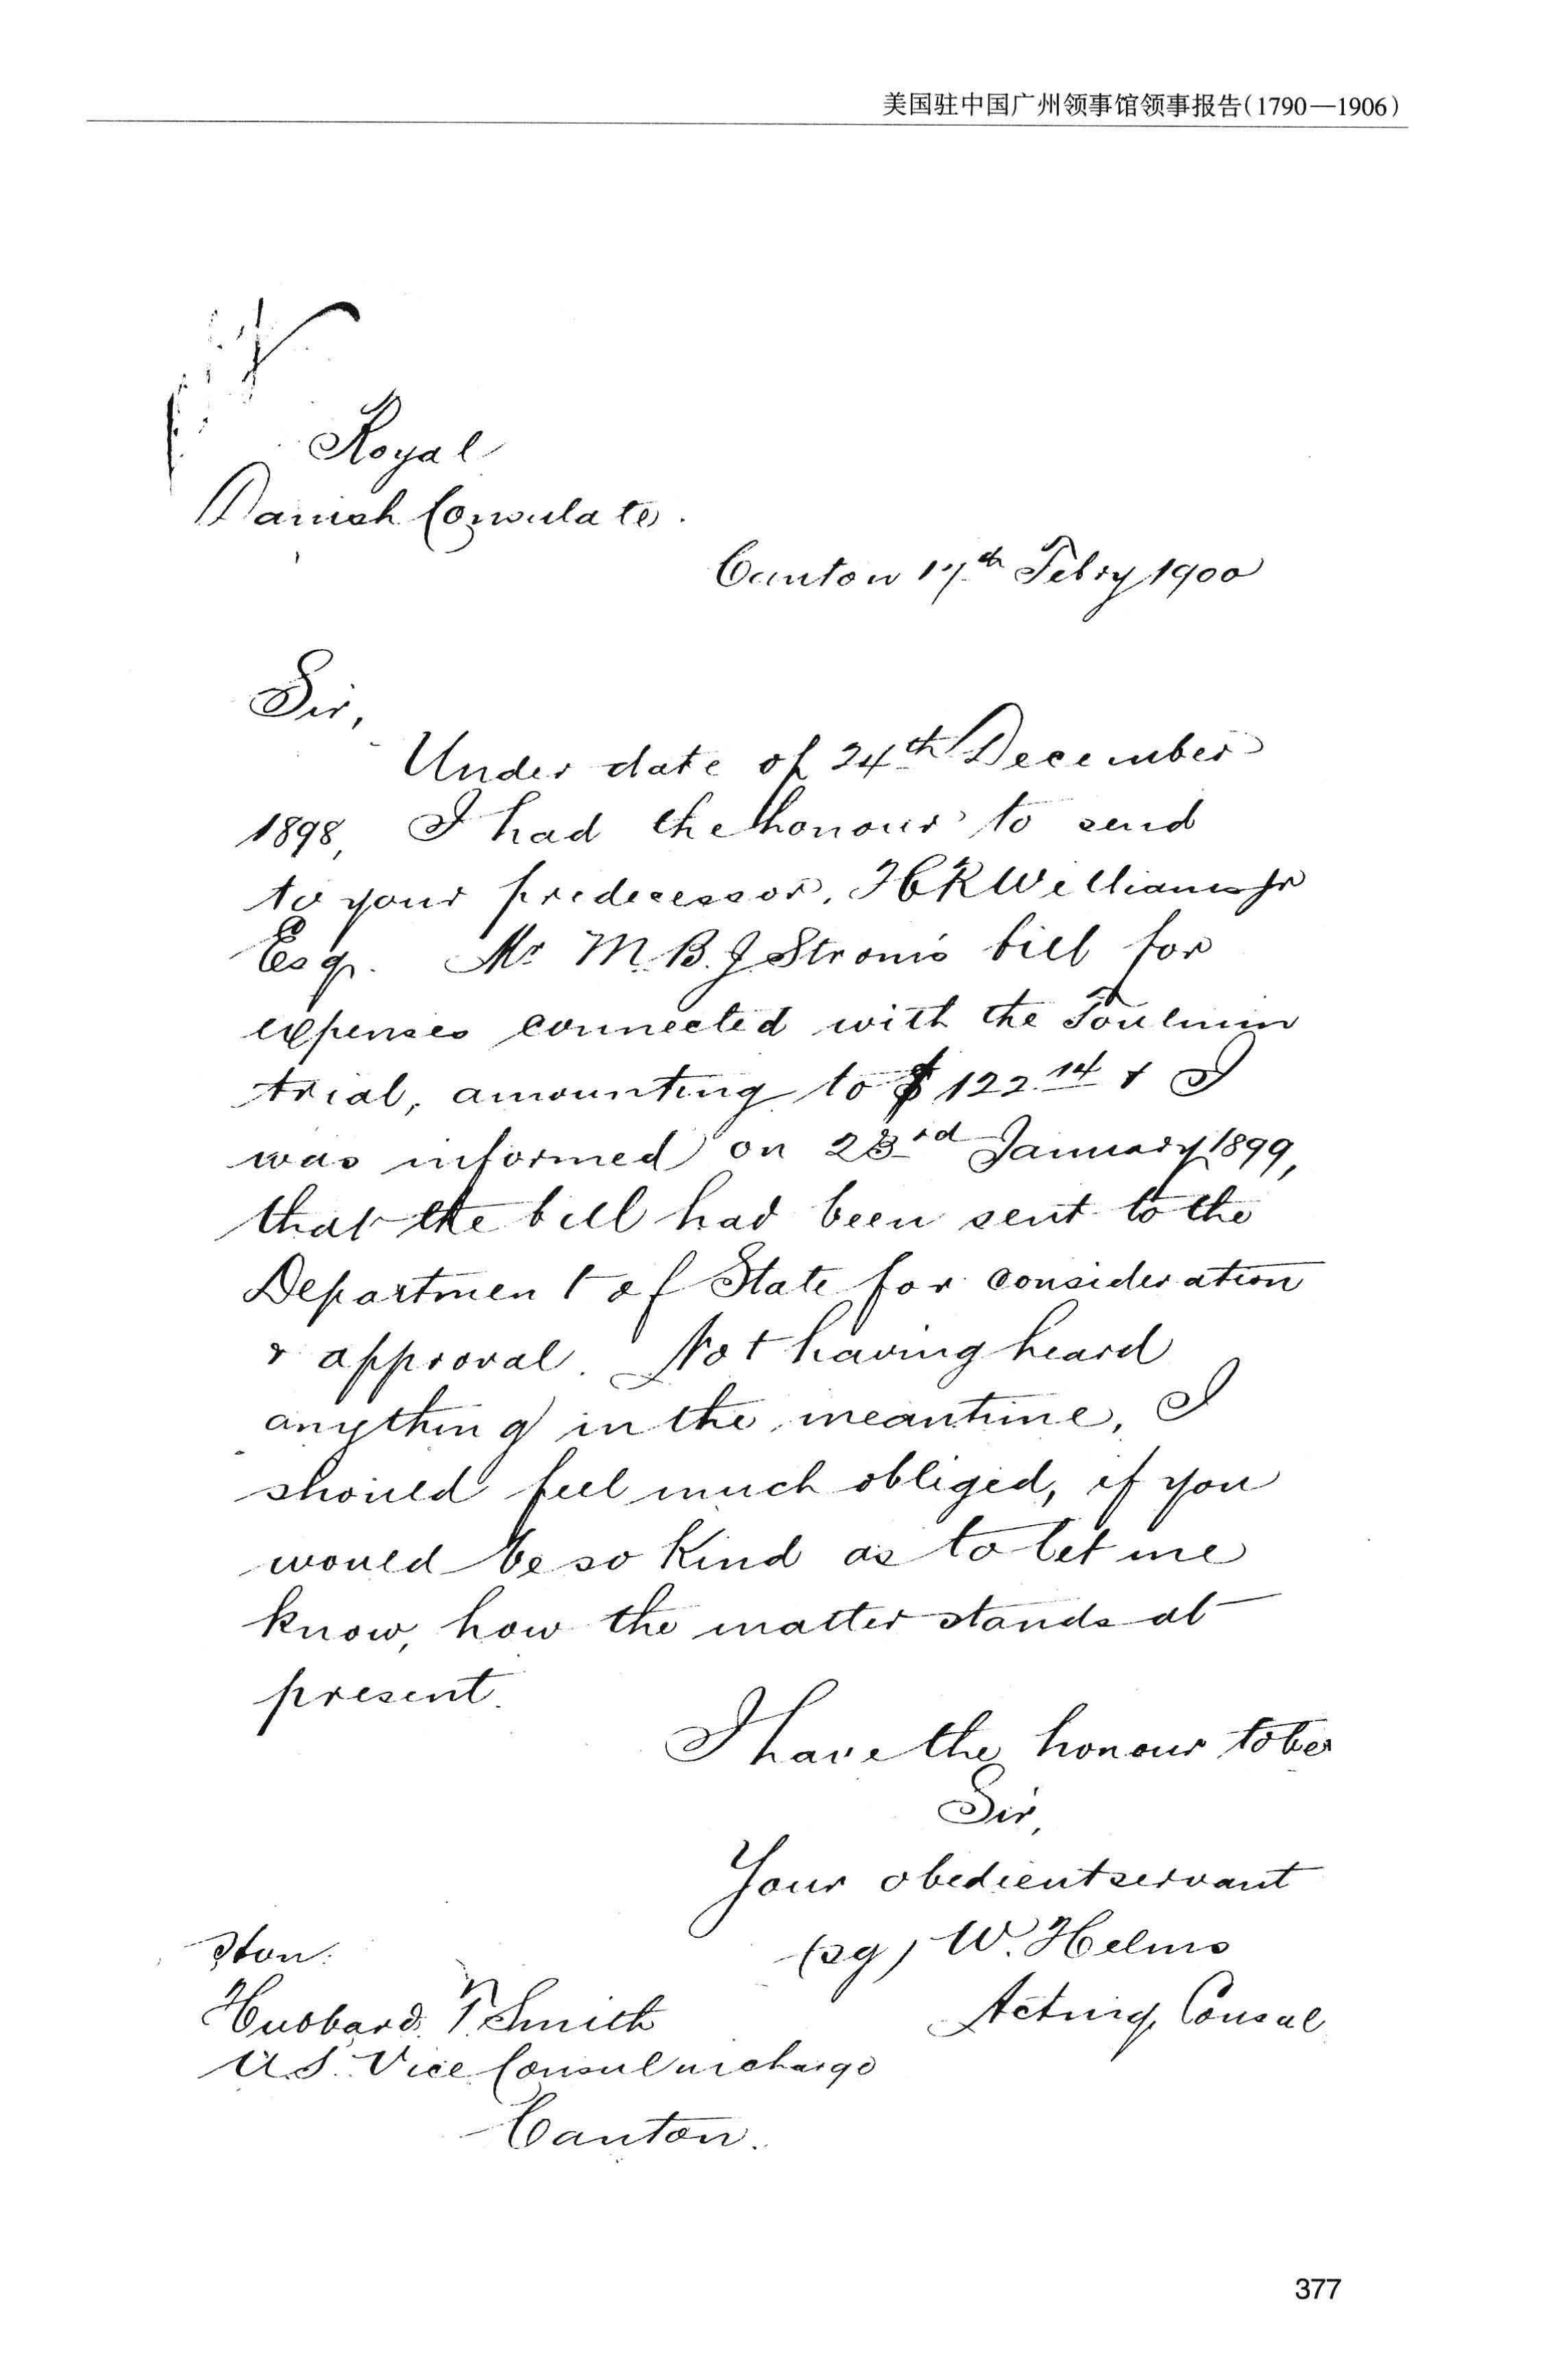 美国驻中国广州领事馆领事报告(1790—1906)
Royal
Danish Consulate.
Canton 17th Febry 1900
Sir,
Under date of 24th December
1898, I had the honour to send
to your predecessor, H R Williams Jr
Esq. Mr M. B. J Strom's bill for
expenses connected with the Toulmin
trial, amounting to $ 122 14 & I
was informed on 23rd January 1899,
that the bill had been sent to the
Department of State for consideration
& approval. Not having heard
anything in the meantime, I
should feel much obliged, if you
would be so kind as to let me
know, how the matter stands at
present.
I have the honour to be
Sir,
Your obedient servant
(sg) W. Helms
Acting Consul
Hon:
Hubbard T. Smith
U.S. Vice Consul in charge
Canton.
377